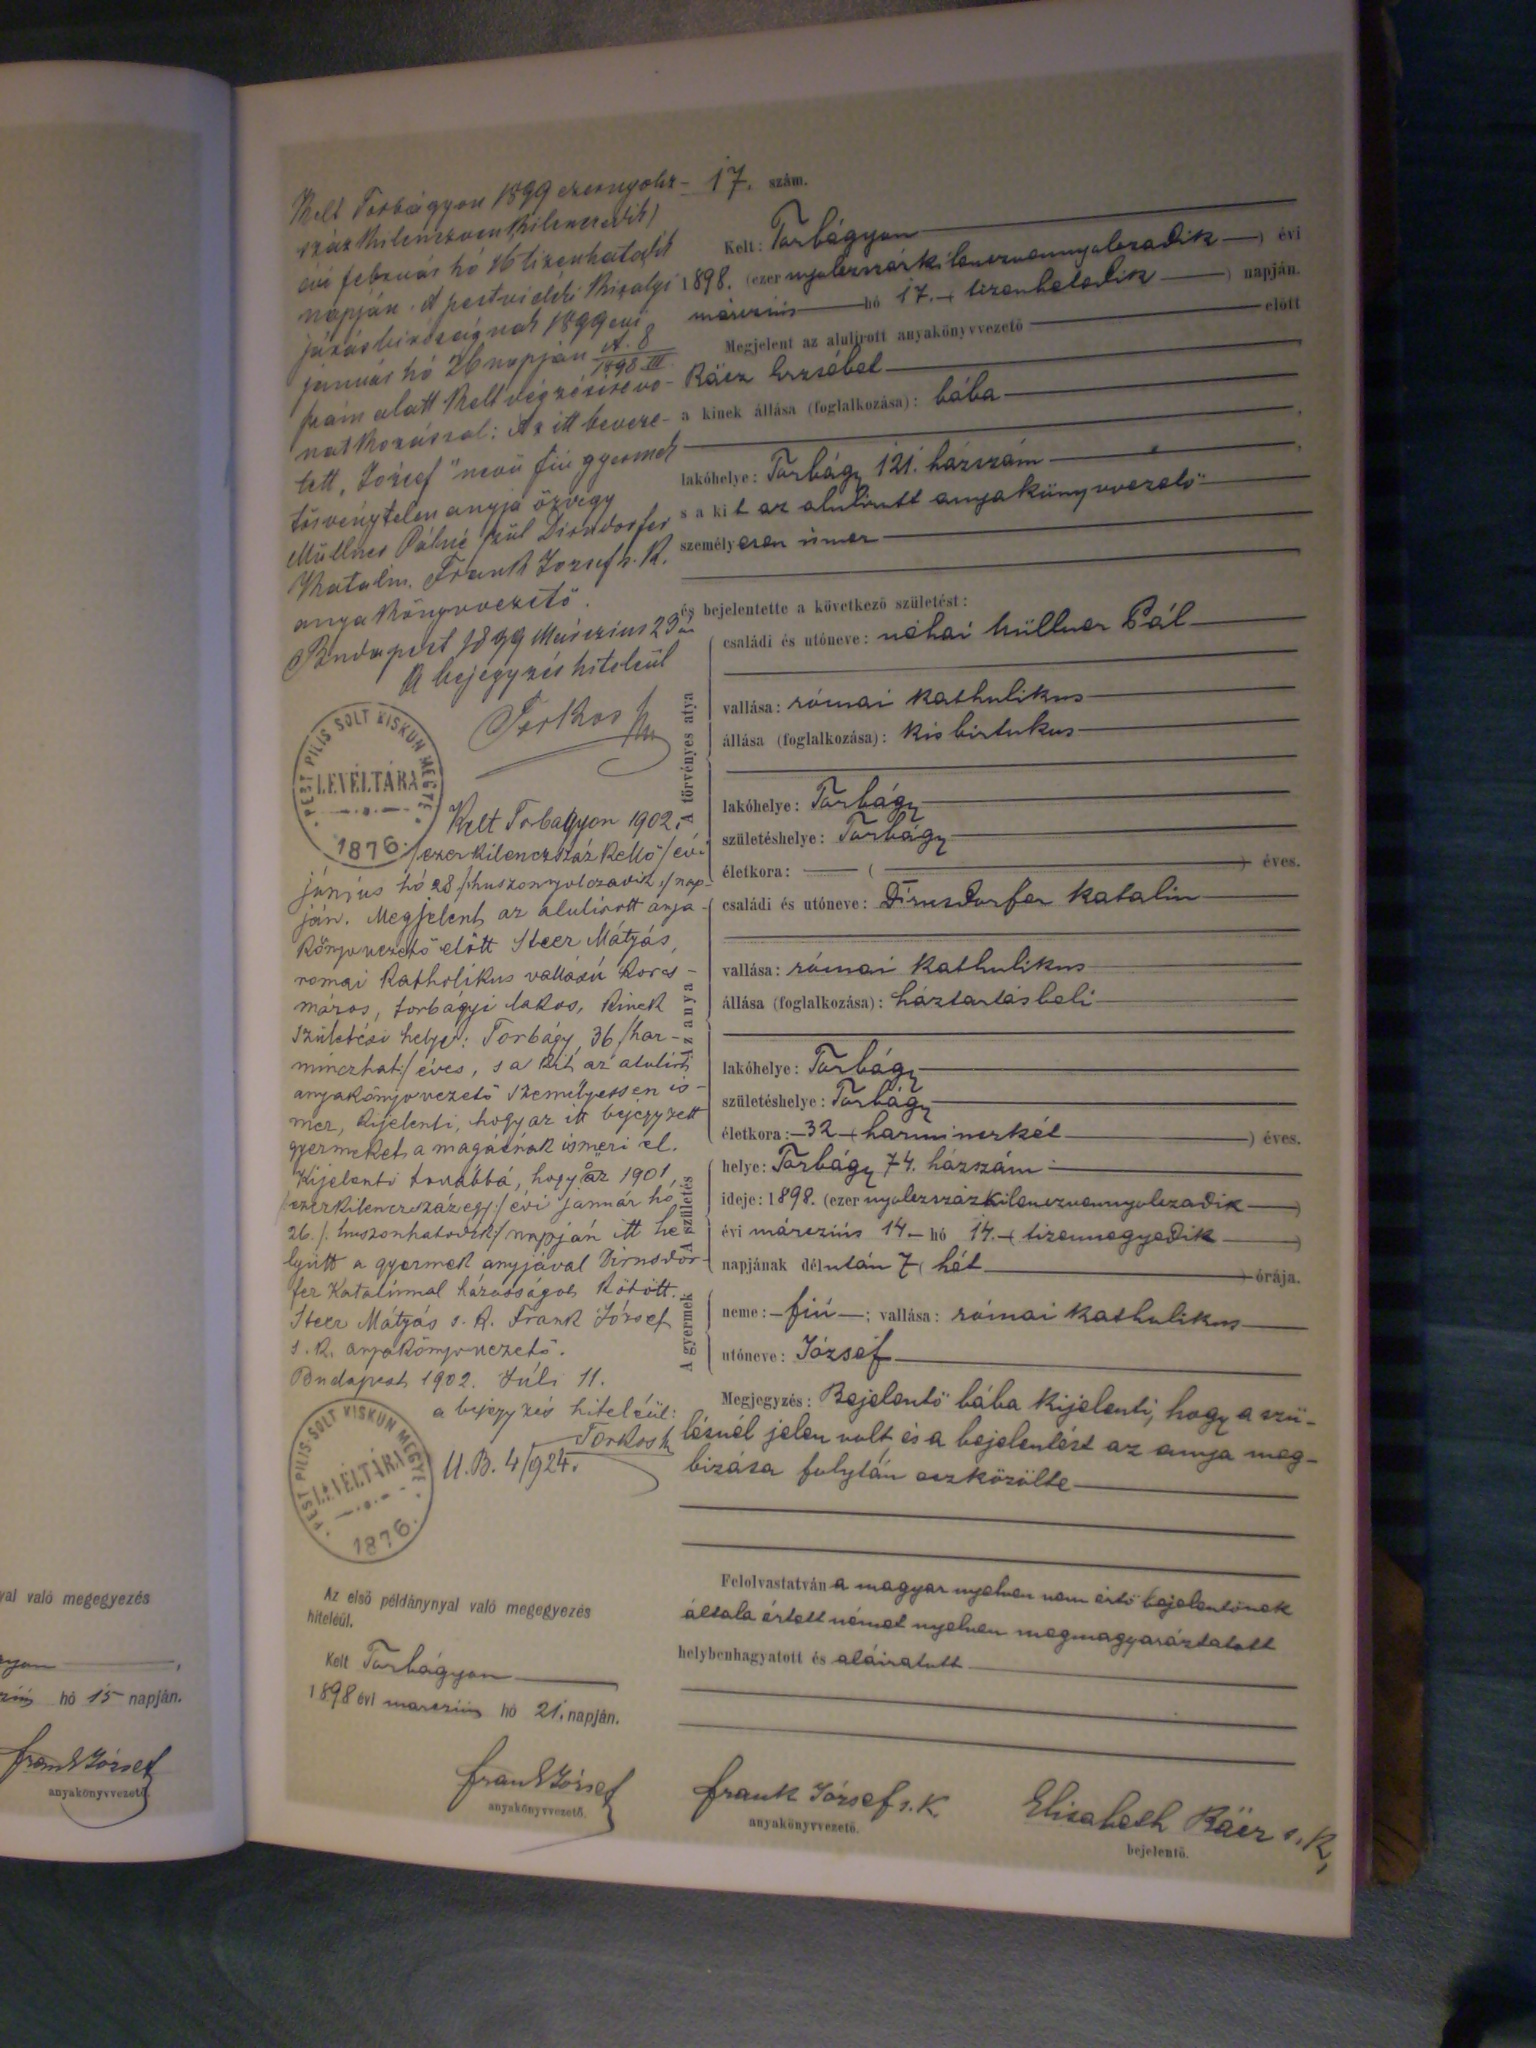 Kelt Torbágyon 1899 ezernyolcz-
száz kilenczvenkilenczedik)
évi február hó 16 tizenhatodik
napján. A pestvidéki királyi
járásbiróságnak 1899 évi
január hó 26 napján A. 8
1898 III.
szám alatt kelt végzésére vo-
natkozással: Az itt beveze-
tett „József" nevű fiú gyermek
törvénytelen anyja özvegy
Müllner Pálné szül Dirnsdorfer
Katalin. Frank József s. k.
anyakönyvvezető.
Budapest 1899 Márczius 23án
A bejegyzés hiteléül
Torkos
PEST PILIS SOLT KISKUN MEGYE
LEVÉLTÁRA
1876
Kelt Torbágyon 1902.
/ezerkilenczszáz kettő/ évi
június hó 28 /:huszonnyolczadik:/ nap-
ján. Megjelent az alulirott anya-
könyvvezető előtt Steer Mátyás,
romai katholikus vallású kocs-
máros, torbágyi lakos, kinek
születési helye: Torbágy, 36 /har-
minczhat:/ éves, s a kit az alulirt
anyakönyvvezető személyessen is-
mer, kijelenti, hogy az itt bejegyzett
gyermeket a magáénak ismeri el.
Kijelenti továbbá, hogy az 1901
/ezerkilenczszázegy:/ évi január hó
26. /: huszonhatodik/ napján itt he-
lyütt a gyermek anyjával Dirnsdor-
fer Katalinnal házasságot kötött.
Steer Mátyás s. k. Frank József
s. k. anyakönyvvezető.
Budapest 1902. Júli 11.
a bejegyzés hiteléül:
Torkos
U. B. 4/924.
PEST-PILIS-SOLT KISKUN MEGYE
LEVÉLTÁRA
1876.
Az első példánynyal való megegyezés
hiteléül.
Kelt Torbágyon
1898 évi marczius hó 21. napján.
Frank József
anyakönyvvezető.
17. szám.
Kelt: Torbágyon
1898. (ezer nyolczszázkilenczvennyolczadik) évi
márczius hó 17. (tizenhetedik) napján.
Megjelent az alulirott anyakönyvvezető előtt
Rácz Erzsébet
a kinek állása (foglalkozása): bába
lakóhelye: Torbágy 121. házszám
s a kit az alulirott anyakönyvvezető
személyesen ismer
és bejelentette a következő születést:
A törvényes atya
családi és utóneve: néhai Müllner Pál
vallása: római katholikus
állása (foglalkozása): kisbirtokos
lakóhelye: Torbágy
születéshelye: Torbágy
életkora: — ( ) éves.
Az anya
családi és utóneve: Dirnsdorfer Katalin
vallása: római katholikus
állása (foglalkozása): háztartásbeli
lakóhelye: Torbágy
születéshelye: Torbágy
életkora: 32 (harminczkét) éves.
A születés
helye: Torbágy 74. házszám
ideje: 1898. (ezer nyolczszázkilenczvennyolczadik)
évi márczius 14 hó 14. (tizennegyedik)
napjának délután 7 (hét) órája.
A gyermek
neme: fiú; vallása: római katholikus
utóneve: József
Megjegyzés: Bejelentő bába kijelenti, hogy a szü-
lésnél jelen volt és a bejelentést az anya meg-
bizása folytán eszközölte
Felolvastatván a magyar nyelven nem értő bejelentőnek
általa értett német nyelven megmagyaráztatott
helybenhagyatott és aláiratott
Frank József s. k.
anyakönyvvezető.
Elisabeth Räcz s. k.
bejelentő.
val való megegyezés
hó 15 napján.
Frank József
anyakönyvvezető.